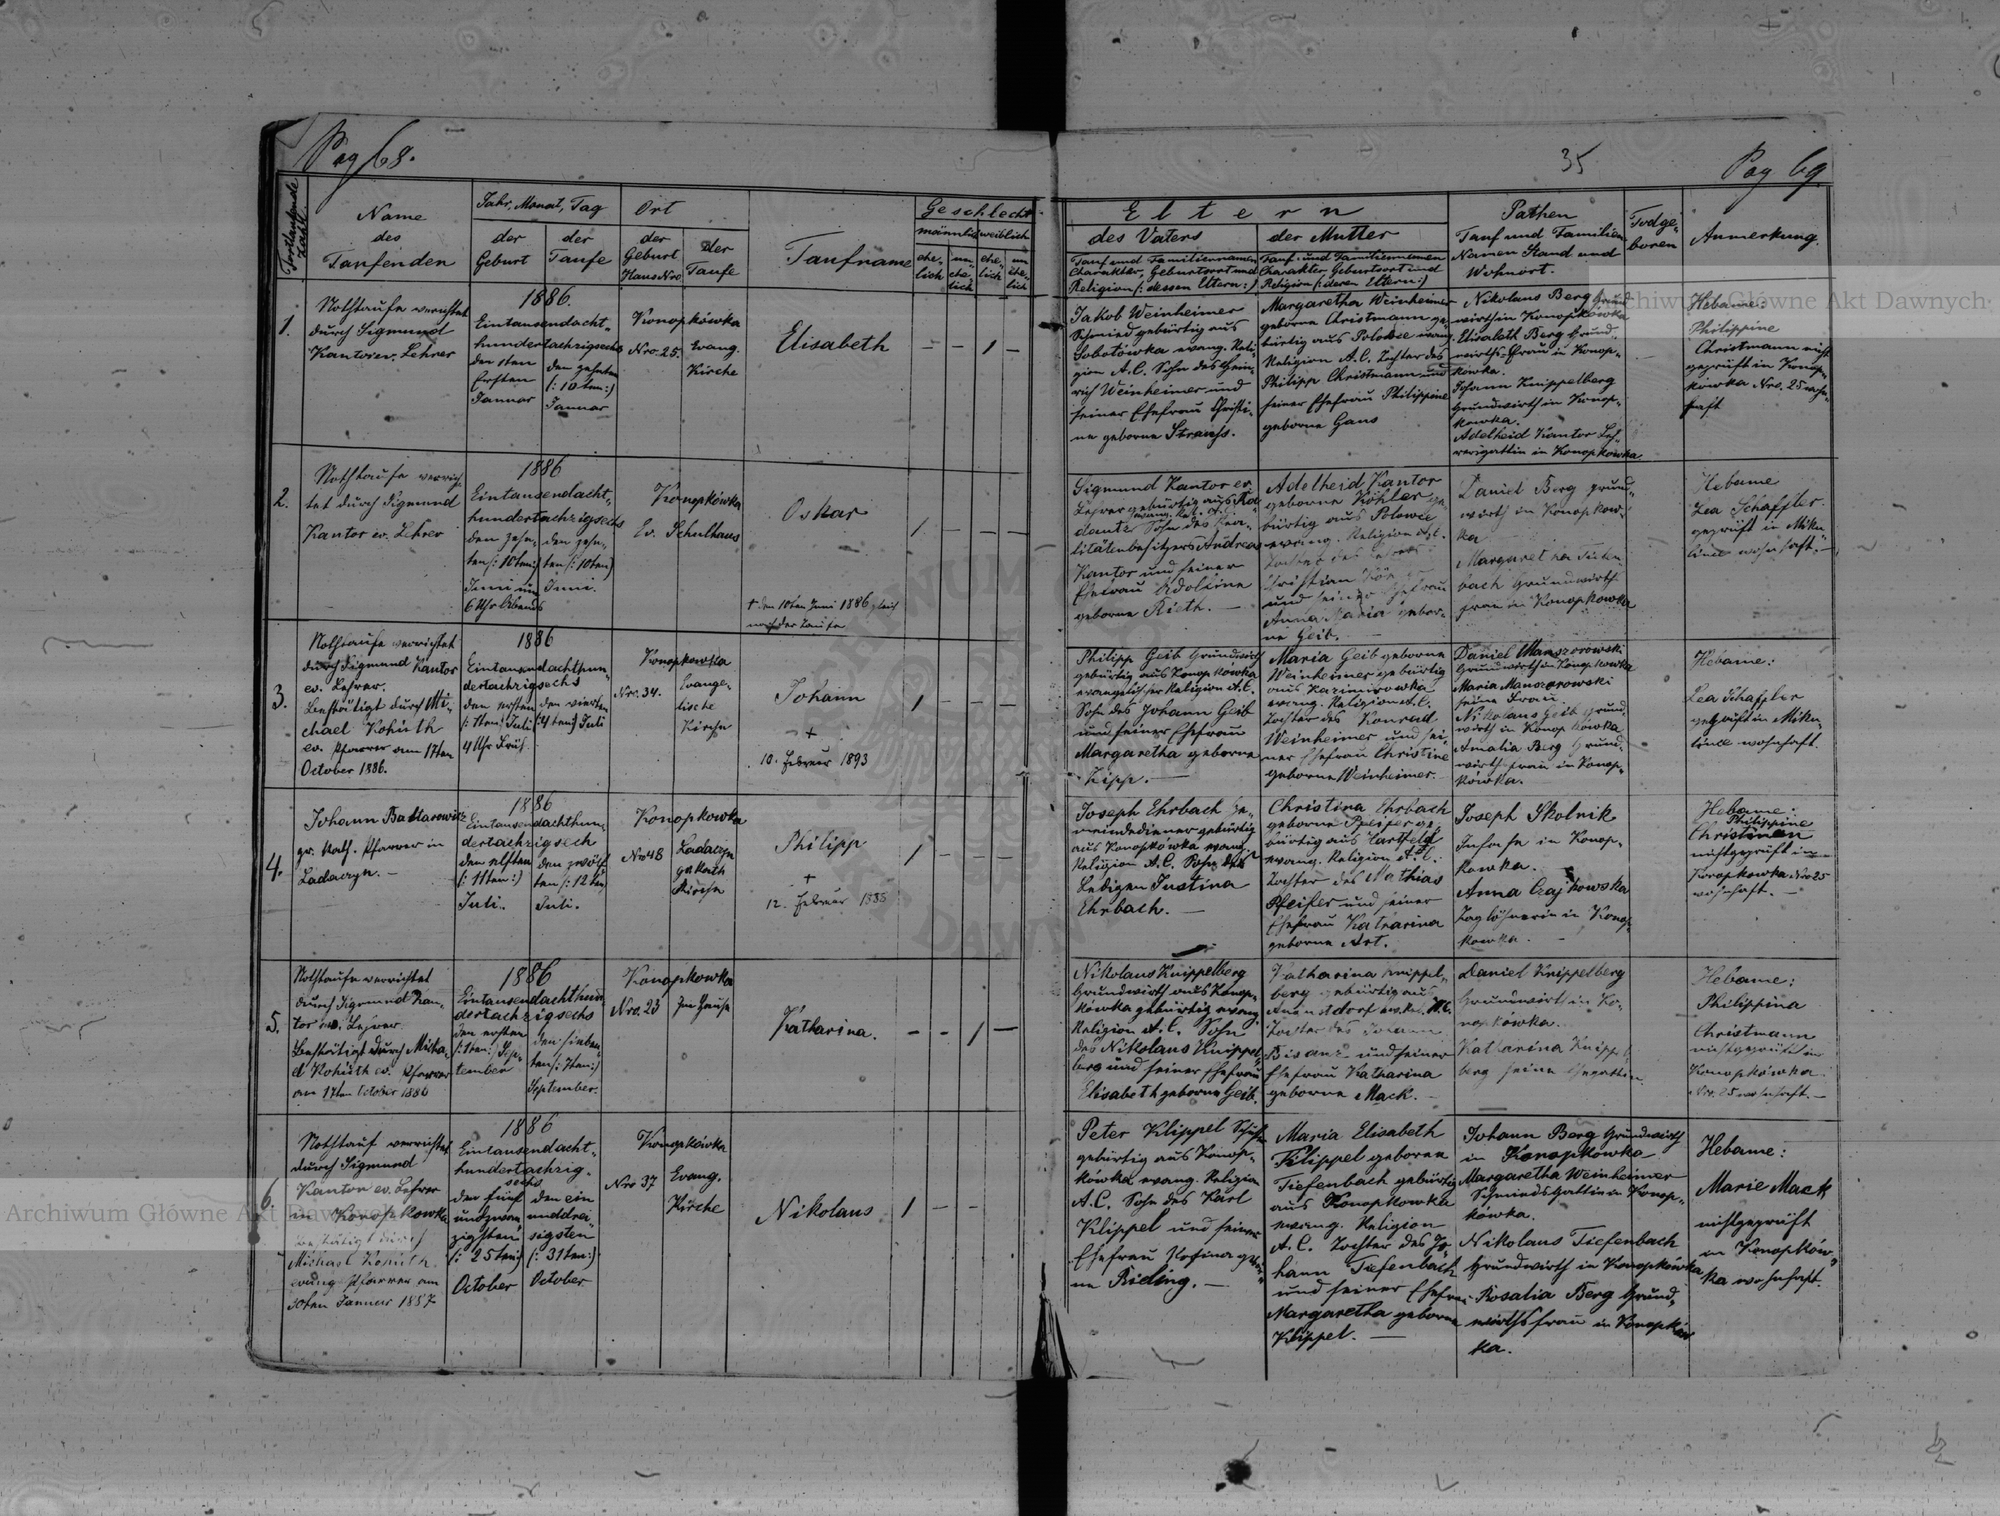 Pag 68.
35
Pag 69
Fortlaufende Zahl.
Name
des
Taufenden
Jahr, Monat, Tag
der
Geburt
der
Taufe
Ort
der
Geburt
Haus Nro.
der
Taufe
Taufname
Geschlecht
männlich
weiblich
ehe-
lich
un-
ehe-
lich
ehe-
lich
un
ehe-
lich
Eltern
des Vaters
der Mutter
Tauf und Familiennamen
Charakter, Geburtsort und
Religion (: dessen Eltern :)
Tauf- und Familiennamen
Charakter Geburtsort und
Religion (: deren Eltern :)
Pathen
Tauf und Familien
Namen Stand und
Wohnort.
Todge-
boren
Anmerkung.
1.
Nothtaufe verrichtet
durch Sigmund
Kantor ev. Lehrer
1886.
Eintausendacht-
hundertachzigsechs
den 1ten
Ersten
Januar
den zehnten
(: 10ten :)
Januar
Konopkówka
Nro. 25.
Evang.
Kirche
Elisabeth
– – 1 –
Jakob Weinheimer
Schmied gebürtig aus
Sobotówka evang. Reli-
gion A.C. Sohn des Hein-
rich Weinheimer und
seiner Ehefrau Christi-
ne geborne Strauss.
Margaretha Weinheimer
geborne Christmann ge-
bürtig aus Polowce evang.
Religion A.C. Tochter des
Philipp Christmann und
seiner Ehefrau Philippine
geborne Gans
Nikolaus Berg Grund
wirth in Konopkówka
Elisabeth Berg Grund-
wirths-Frau in Konop-
kówka.
Johann Knippelberg
Grundwirth in Konop-
kowka.
Adelheid Kantor Leh-
rersgattin in Konopkowka
Hebame:
Philippine
Christmann nicht
geprüft in Konop-
kówka Nro. 25 wohn-
haft
2.
Nothtaufe verrich-
tet durch Sigmund
Kantor ev. Lehrer
1886
Eintausendacht-
hundertachzigsechs
den zehn-
ten (: 10ten :)
Juni um
6 Uhr Abends
den zehn-
ten (: 10ten)
Juni.
Konopkówka
Ev. Schulhaus
Oskar
† den 10ten Juni 1886 gleich
nach der Taufe
1 – – –
Sigmund Kantor ev.
Lehrer gebürtig aus
evang. Rel. A.C.
Sohn des Rea-
litätenbesitzers Andreas
Kantor und seiner
Ehefrau Adoline
geborne Rieth. –
Adelheid Kantor
geborne Köhler ge-
bürtig aus Polowce
evang. Religion A.C.
Tochter des Lehrers
Christian
und seiner Ehefrau
Anna Maria gebor-
ne Geib.
Daniel Berg Grund-
wirth in Konopkow-
ka
Margaretha Tiefen-
bach Grundwirth-
frau in Konopkowka
Hebame
Lea Schaffler
geprüft in Miku-
lince wohnhaft. –
3.
Nothtaufe verrichtet
durch Sigmund Kantor
ev. Lehrer.
Bestätigt durch Mi-
chael Kohúth
ev. Pfarrer am 17ten
October 1886.
1886
Eintausendachthun-
dertachzigsechs
den ersten
(: 1ten :) Juli
4 Uhr Früh.
den vierten
(: 4ten) Juli
Konopkowka
Nro. 34.
Evange-
lische
Kirche
Johann
†
10. Februar 1893
1 – – –
Philipp Geib Grundwirth
gebürtig aus Konopkówka
evangelischer Religion A.C.
Sohn des Johann Geib
und seiner Ehefrau
Margaretha geborne
Zipp. –
Maria Geib geborne
Weinheimer gebürtig
aus Kazimirowka
evang. Religion A.C.
Tochter des Konrad
Weinheimer und sei-
ner Ehefrau Christine
geborne Weinheimer. –
Daniel Manszorowski
Grundwirth in Konopkowka
Maria Manszorowski
seine Frau.
Nikolaus Geib Grund-
wirth in Konopkówka
Amalia Berg Grund-
wirthsfrau in Konop-
kówka.
Hebame:
Lea Schaffler
geprüft in Miku
lince wohnhaft.
4.
Johann
gr. kath. Pfarrer in
Ladaczyn. –
1886
Eintausendachthun-
dertachzigsech
den elften
(: 11ten :)
Juli.
den zwölf-
ten (: 12ten
Juli.
Konopkowka
Nro 48
Ladaczyn
gr. kath
Kirche
Philipp
†
12. Februar
1 – –
Joseph Ehrbach Ge-
meindediener gebürtig
aus Konopkówka evang.
Religion A.C. Sohn der
Ledigen Justina
Ehrbach. –
Christina Ehrbach
geborne Pfeifer ge-
bürtig aus
evang. Religion A.C.
Tochter des Mathias
Pfeifer und seiner
Ehefrau Katharina
geborne Art.
Joseph Skolnik
Insasse in Konop-
kowka.
Anna Czajkowska
Taglöhnerin in Konop-
kowka. –
Hebame:
Philippine
Christman
nichtgeprüft in
Konopkowka Nro 25
wohnhaft. –
5.
Nothtaufe verrichtet
durch Sigmund Kan-
tor ev. Lehrer.
Bestätigt durch Micha-
el Kohúth ev. Pfarrer
am 17ten October 1886
1886
Eintausendachthun
dertachzigsechs
den ersten
(: 1ten :) Sep-
tember
den sieben-
ten (: 7ten :)
September.
Konopkowka
Nro. 23
Im Hause
Katharina.
– – 1 –
Nikolaus Knippelberg
Grundwirth aus Konop-
kówka gebürtig evang.
Religion A.C. Sohn
des Nikolaus Knippel-
berg und seiner Ehefrau
Elisabeth geborne Geib.
Katharina Knippel-
berg gebürtig aus
ev. Rel. A.C.
Tochter des Johann
Bisanz und seiner
Ehefrau Katharina
geborne Mack. –
Daniel Knippelberg
Grundwirth in Ko-
nopkówka.
Katharina Knippel
berg seine Ehegattin
Hebame:
Philippina
Christmann
nichtgeprüft in
Konopkówka
Nro. 25 wohnhaft. –
6.
Nothtauf verrichtet
durch Sigmund
Kantor ev. Lehrer
in Konopkowka
bestätigt durch
Michael Kohuth
evang. Pfarrer am
30ten Januar 1887
1886
Eintausendacht-
hundertachzig-
sechs
den fünf
undzwan-
zigsten
(: 25ten :)
October
den ein
unddrei-
sigsten
(: 31ten :)
October
Konopkówka
Nro 37
Evang.
Kirche
Nikolaus
1 – –
Peter Klippel
gebürtig aus Konop-
kówka evang. Religion
A.C. Sohn des Karl
Klippel und seiner
Ehefrau Rosina gebor-
ne Rieling. –
Maria Elisabeth
Klippel geborne
Tiefenbach gebürtig
aus Konopkowka
evang. Religion
A.C. Tochter des Jo-
hann Tiefenbach
und seiner Ehefrau
Margaretha geborne
Klippel. –
Johann Berg Grundwirth
in Konopkówka
Margaretha Weinheimer
Schmieds Gattin in Konop-
kówka.
Nikolaus Tiefenbach
Grundwirth in Konopkówka
Rosalia Berg Grund-
wirthsfrau in Konopków
ka.
Hebame:
Marie Mack
nichtgeprüft
in Konopków-
ka wohnhaft.
Archiwum Główne Akt Dawnych
Archiwum Główne Akt Dawnych